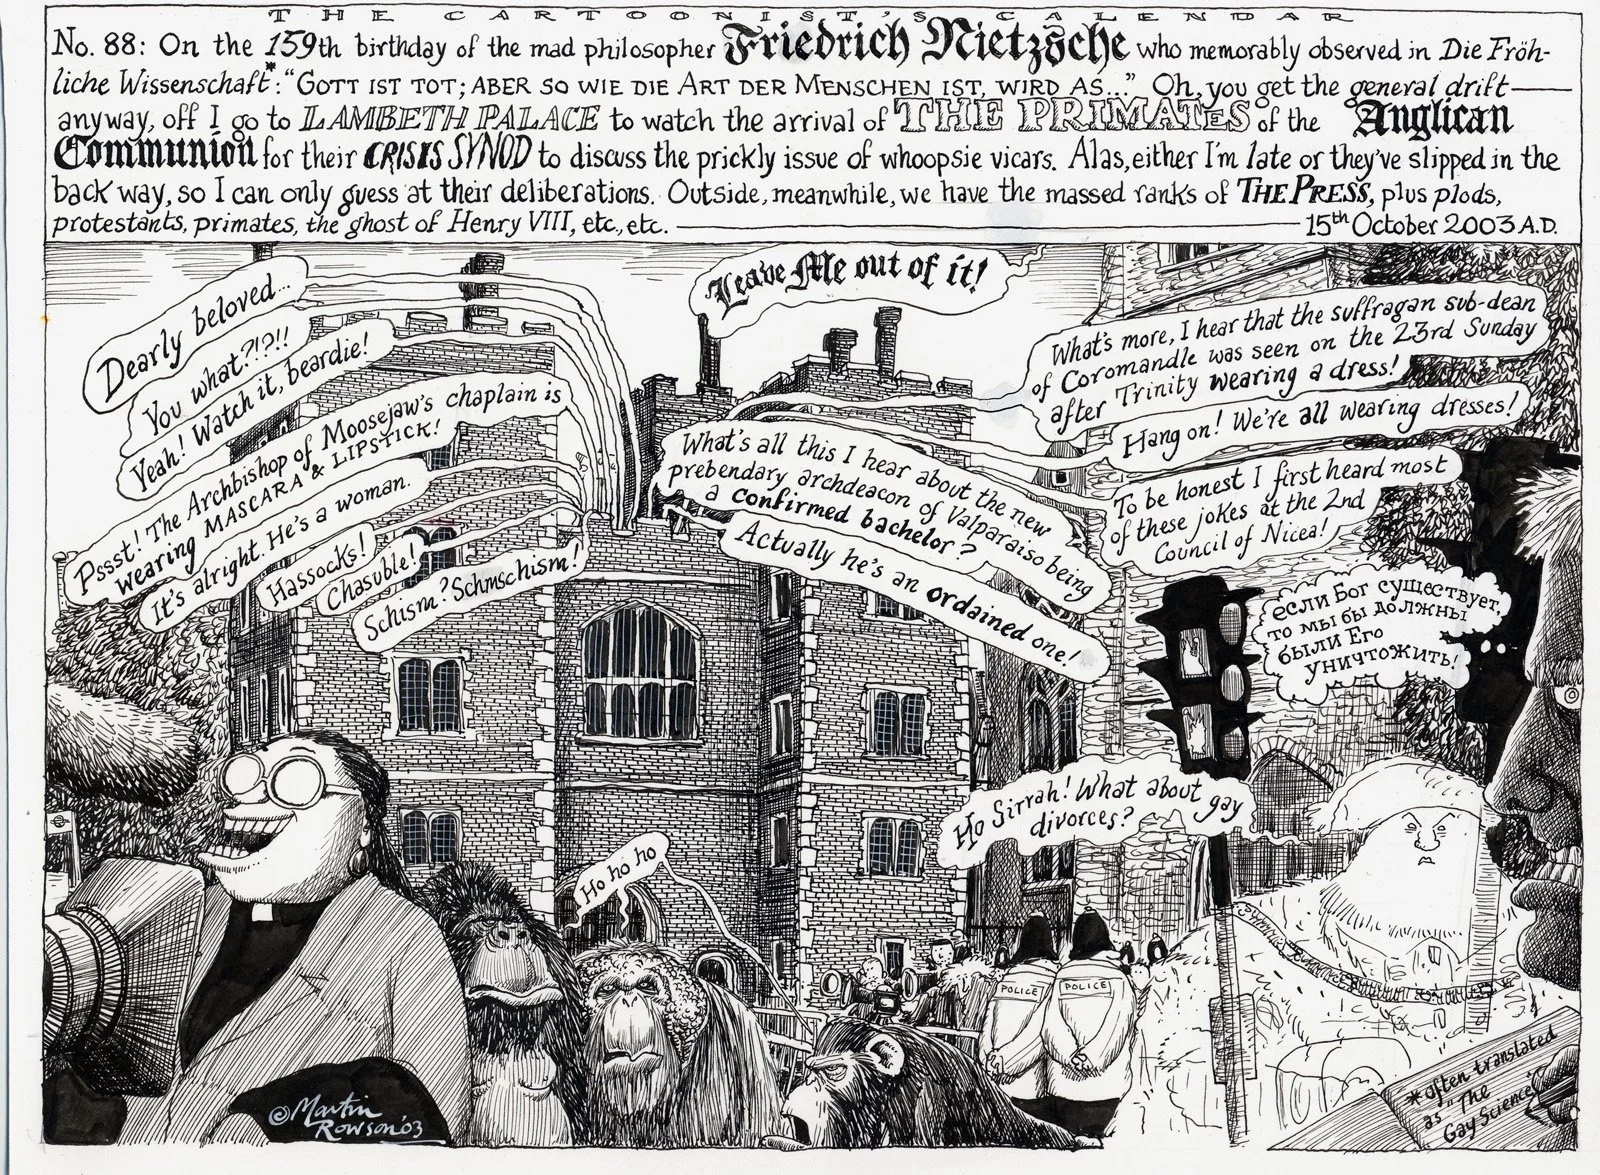 THE CARTOONIST'S CALENDAR
No. 88: On the 159th birthday of the mad philosopher Friedrich Nietzsche who memorably observed in Die Fröh-
liche Wissenschaft*: "GOTT IST TOT; ABER SO WIE DIE ART DER MENSCHEN IST, WIRD AS..." Oh, you get the general drift—
anyway, off I go to LAMBETH PALACE to watch the arrival of THE PRIMATES of the Anglican
Communion for their CRISIS SYNOD to discuss the prickly issue of whoopsie vicars. Alas, either I'm late or they've slipped in the
back way, so I can only guess at their deliberations. Outside, meanwhile, we have the massed ranks of THE PRESS, plus plods,
protestants, primates, the ghost of Henry VIII, etc., etc. — 15th October 2003 A.D.
Dearly beloved...
You what?!?!!
Yeah! Watch it, beardie!
Pssst! The Archbishop of Moosejaw's chaplain is
wearing MASCARA & LIPSTICK!
It's alright. He's a woman.
Hassocks!
Chasuble!
Schism? Schmschism!
Leave Me out of it!
What's all this I hear about the new
prebendary archdeacon of Valparaiso being
a confirmed bachelor?
Actually he's an ordained one!
What's more, I hear that the suffragan sub-dean
of Coromandle was seen on the 23rd Sunday
after Trinity wearing a dress!
Hang on! We're all wearing dresses!
To be honest I first heard most
of these jokes at the 2nd
Council of Nicea!
если Бог существует,
то мы бы должны
были Его
уничтожить!
Ho Sirrah! What about gay
divorces?
Ho ho ho
POLICE
POLICE
*often translated
as "The
Gay Science"
© Martin
Rowson '03